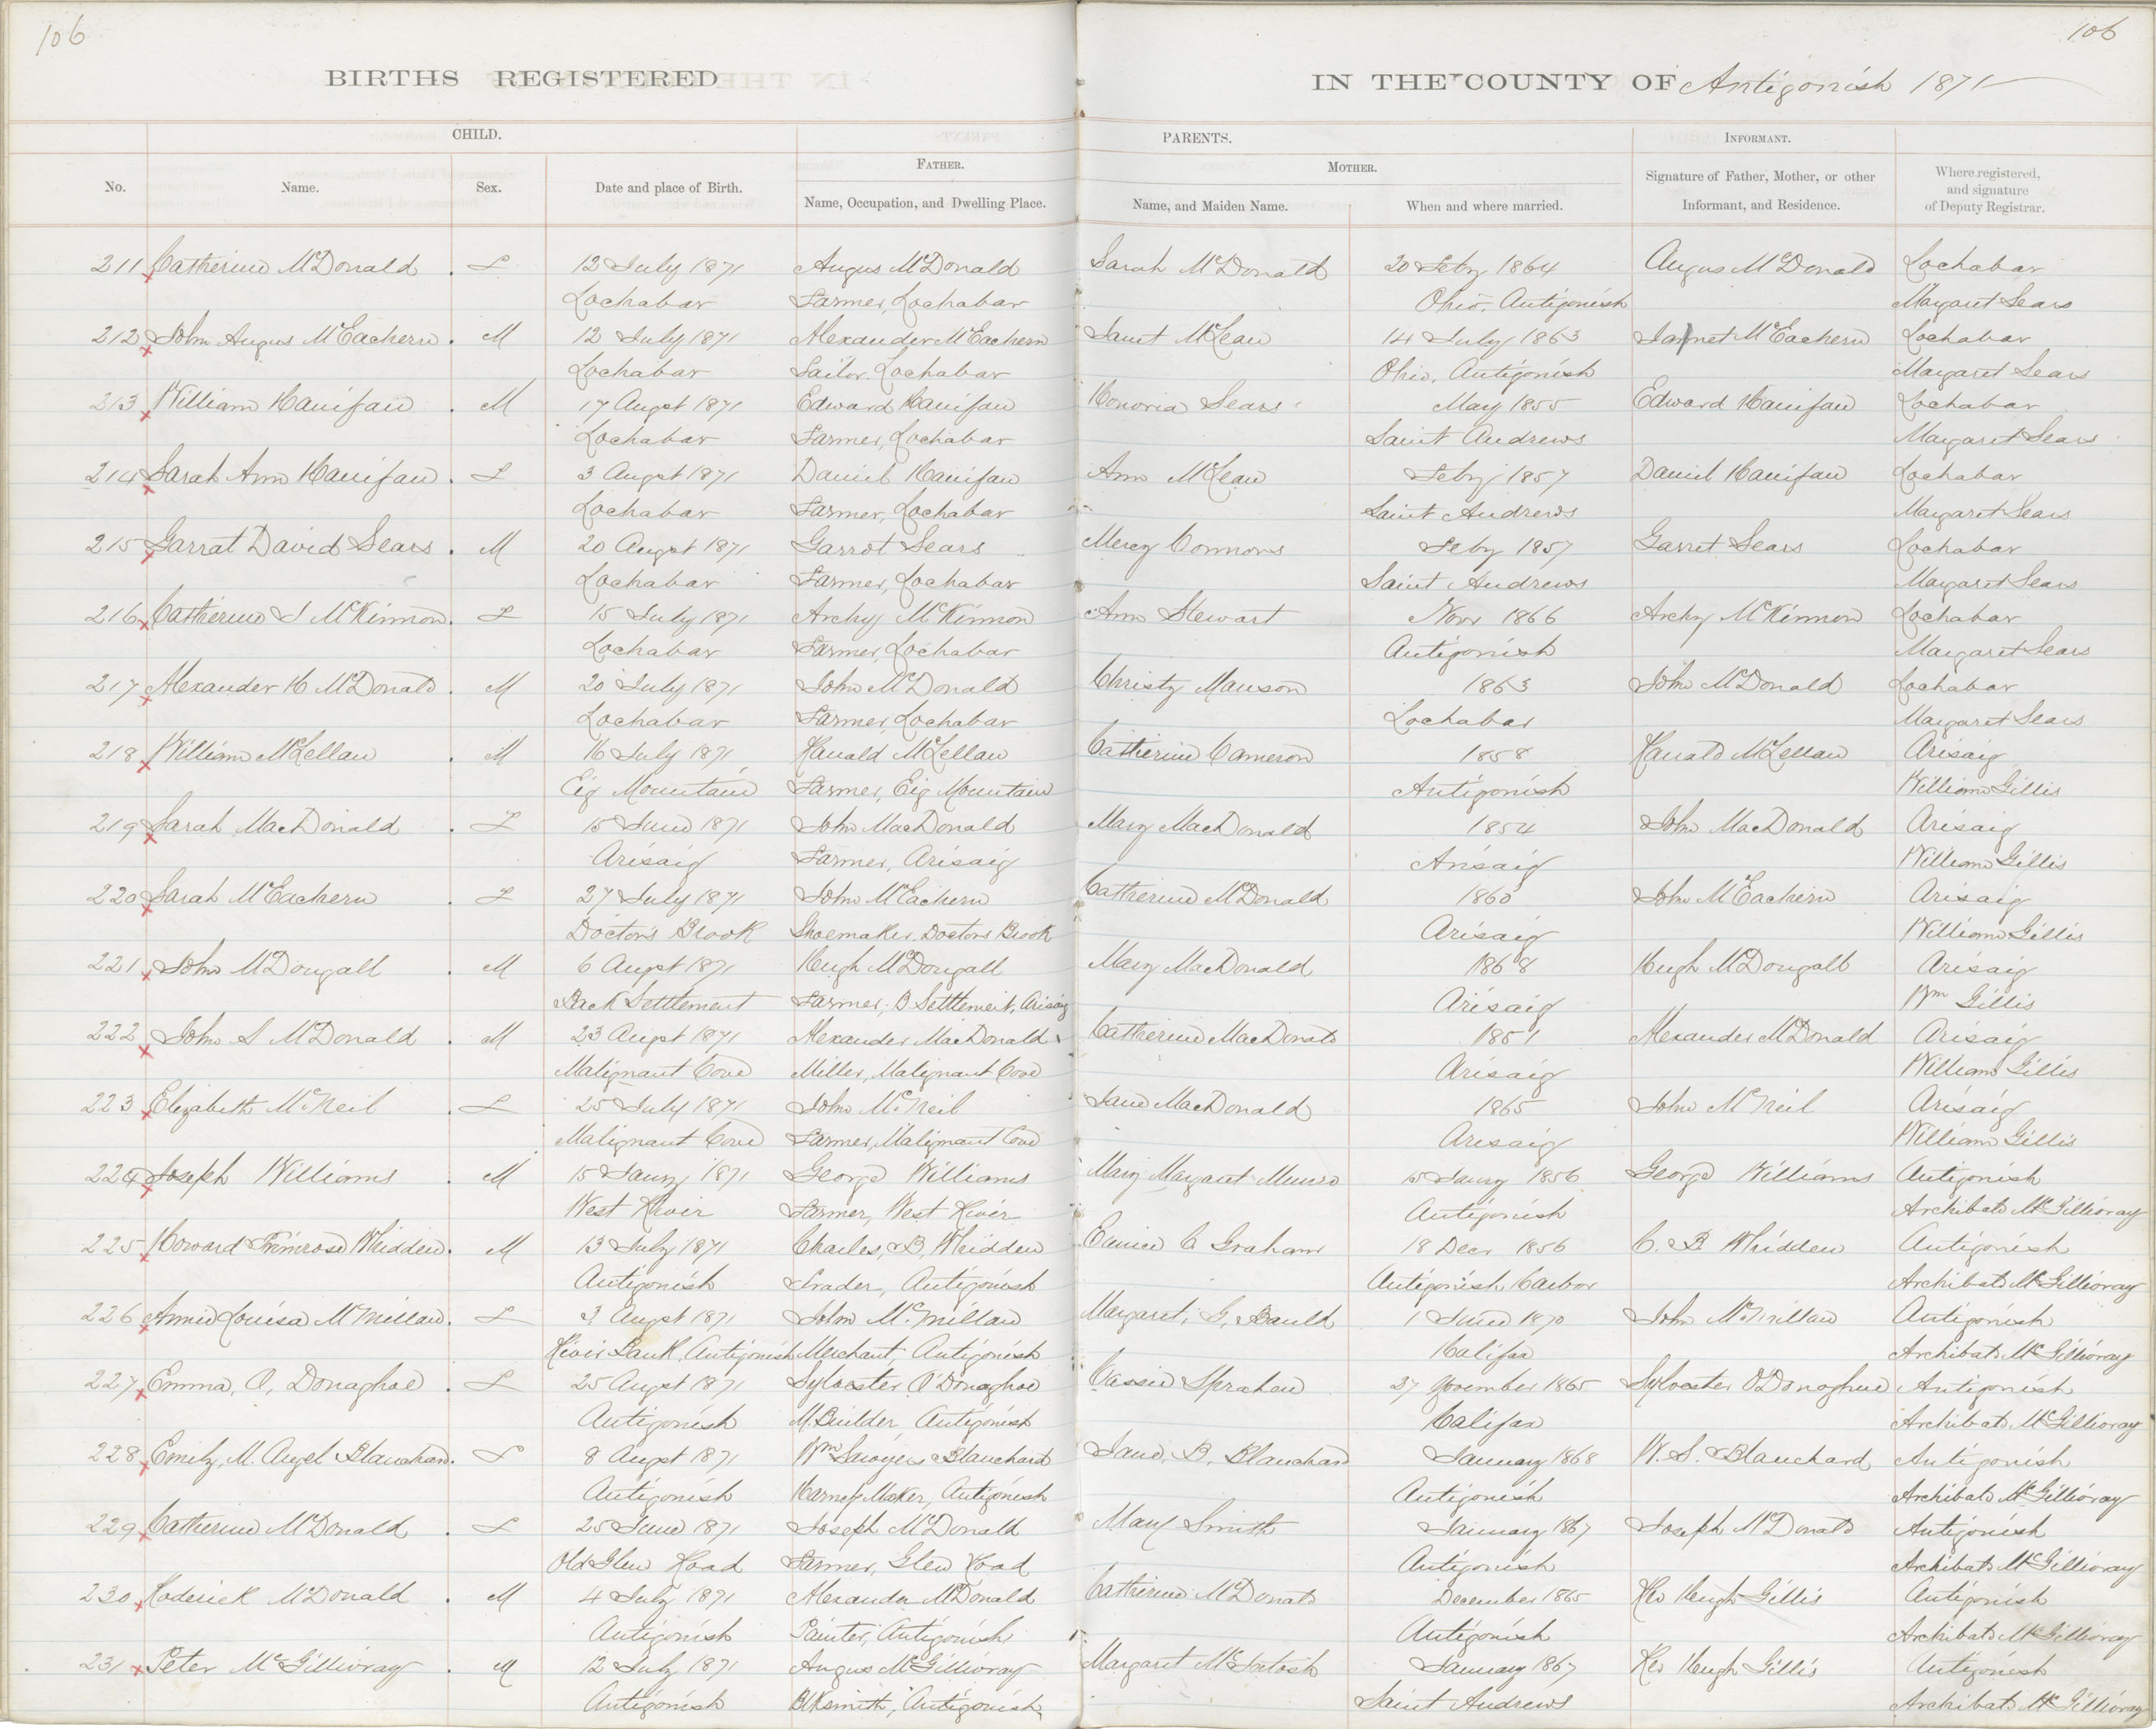 106
106
BIRTHS REGISTERED
IN THE COUNTY OF Antigonish 1871
CHILD.
PARENTS.
INFORMANT.
FATHER.
MOTHER.
No.
Name.
Sex.
Date and place of Birth.
Name, Occupation, and Dwelling Place.
Name, and Maiden Name.
When and where married.
Signature of Father, Mother, or other
Informant, and Residence.
Where registered,
and signature
of Deputy Registrar.
211 Catherine McDonald . F 12 July 1871 Angus McDonald Sarah McDonald 20 Feby 1864 Angus McDonald Lochabar
Lochabar Farmer, Lochabar Ohio, Antigonish Margaret Sears
212 John Angus McEachern . M 12 July 1871 Alexander McEachern Janet McLean 14 July 1863 Janet McEachern Lochabar
Lochabar Sailor. Lochabar Ohio, Antigonish Margaret Sears
213 William Hanifan . M 17 Augst 1871 Edward Hanifan Honoria Sears May 1855 Edward Hanifan Lochabar
Lochabar Farmer, Lochabar Saint Andrews Margaret Sears
214 Sarah Ann Hanifan . F 3 Augst 1871 Daniel Hanifan Ann McLean Feby 1857 Daniel Hanifan Lochabar
Lochabar Farmer, Lochabar Saint Andrews Margaret Sears
215 Garrat David Sears . M 20 Augst 1871 Garrot Sears Mercy Connors Feby 1857 Garret Sears Lochabar
Lochabar Farmer, Lochabar Saint Andrews Margaret Sears
216 Catherine J McKinnon . F 15 July 1871 Archy McKinnon Ann Stewart Novr 1866 Archy McKinnon Lochabar
Lochabar Farmer, Lochabar Antigonish Margaret Sears
217 Alexander H McDonald . M 20 July 1871 John McDonald Christy Manson 1863 John McDonald Lochabar
Lochabar Farmer, Lochabar Lochabar Margaret Sears
218 William McLellan . M 16 July 1871 Ranald McLellan Catherine Cameron 1858 Ranald McLellan Arisaig
Eig Mountain Farmer, Eig Mountain Antigonish William Gillis
219 Sarah MacDonald . F 15 June 1871 John MacDonald Mary MacDonald 1854 John MacDonald Arisaig
Arisaig Farmer, Arisaig Arisaig William Gillis
220 Sarah McEachern . F 27 July 1871 John McEachern Catherine McDonald 1860 John McEachern Arisaig
Doctors Brook Shoemaker. Doctors Brook Arisaig William Gillis
221 John McDougall . M 6 Augst 1871 Hugh McDougall Mary MacDonald 1868 Hugh McDougall Arisaig
Back Settlement Farmer, B Settlement, Arisaig Arisaig Wm Gillis
222 John S McDonald . M 23 Augst 1871 Alexander MacDonald Catherine MacDonald 1851 Alexander McDonald Arisaig
Malignant Cove Miller, Malignant Cove Arisaig William Gillis
223 Elizabeth McNeil . F 25 July 1871 John McNeil Jane MacDonald 1865 John McNeil Arisaig
Malignant Cove Farmer, Malignant Cove Arisaig William Gillis
224 Joseph Williams . M 15 Jany 1871 George Williams Mary Margaret Munro 15 Jany 1856 George Williams Antigonish
West River Farmer, West River Antigonish Archibald McGillivray
225 Howard Primrose Whidden . M 13 July 1871 Charles, B, Whidden Eunice C Graham 18 Decr 1856 C. B. Whidden Antigonish
Antigonish Trader, Antigonish Antigonish Harbor Archibald McGillivray
226 Annie Louisa McMillan . F 3 Augst 1871 John McMillan Margaret, G, Bauld 1 June 1870 John McMillan Antigonish
River Bank, Antigonish Merchant, Antigonish Halifax Archibald McGillivray
227 Emma, O, Donaghoe . F 25 Augst 1871 Sylvester O'Donaghoe Cassie Strahan 27 November 1865 Sylvester O'Donoghue Antigonish
Antigonish M. Builder Antigonish Halifax Archibald McGillivray
228 Emily, M. Angel Blanchard . F 8 Augst 1871 Wm Sawyers Blanchard Jane, B, Blanchard January 1868 W. S. Blanchard Antigonish
Antigonish Harness Maker, Antigonish Antigonish Archibald McGillivray
229 Catherine McDonald . F 25 June 1871 Joseph McDonald Mary Smith January 1867 Joseph McDonald Antigonish
Old Glen Road Farmer, Glen Road Antigonish Archibald McGillivray
230 Roderick McDonald . M 4 July 1871 Alexander McDonald Catherine McDonald December 1865 Rev Hugh Gillis Antigonish
Antigonish Painter, Antigonish Antigonish Archibald McGillivray
231 Peter McGillivray . M 12 July 1871 Angus McGillivray Margaret McIntosh January 1867 Rev Hugh Gillis Antigonish
Antigonish Blksmith, Antigonish Saint Andrews Archibald McGillivray